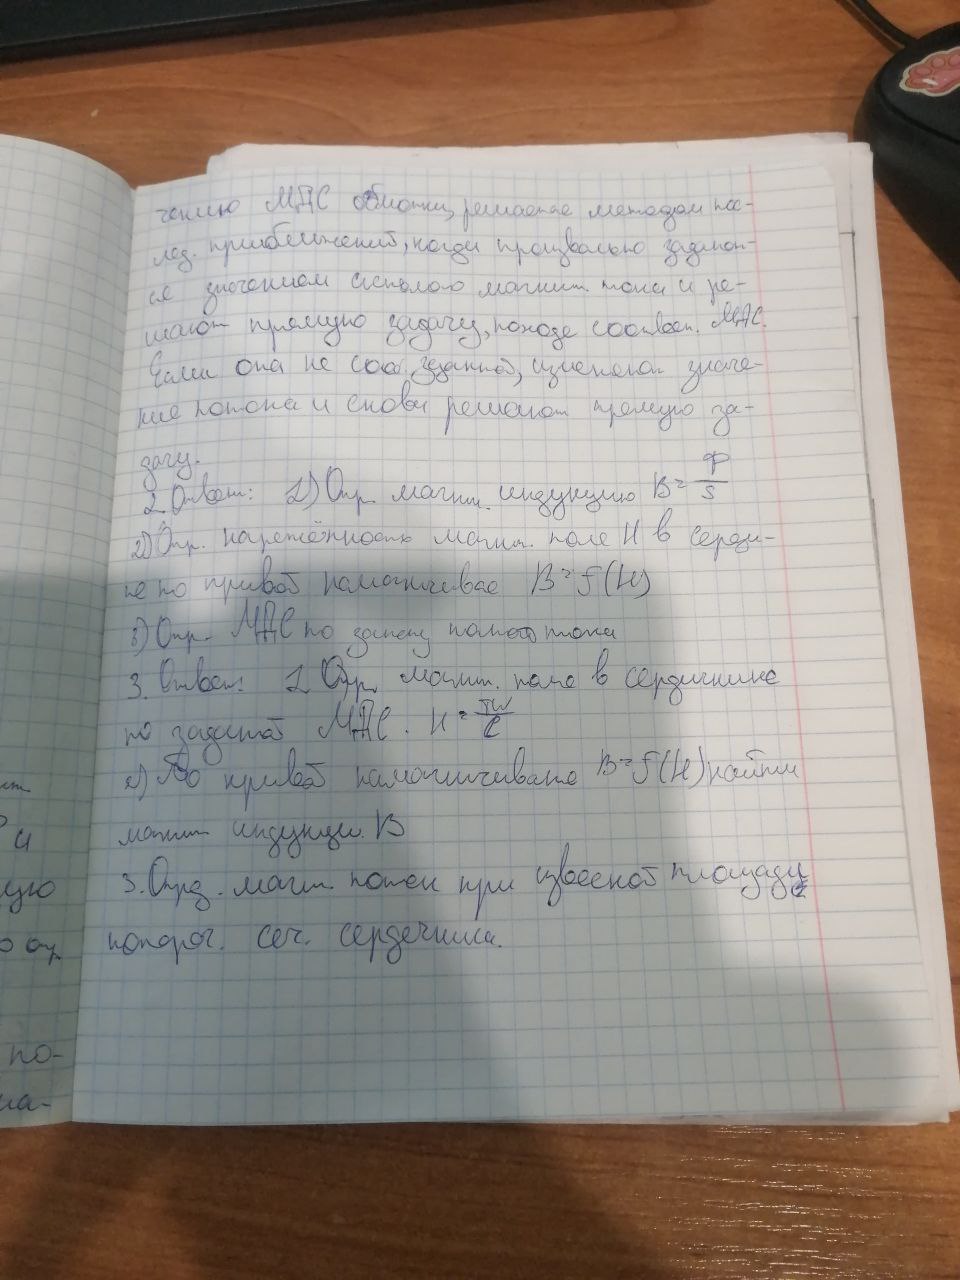 чению МДС обмотки, решается методом пос-
лед. приближений, когда произвольно задают-
ся значением магнит. тока и ре-
шают прямую задачу, находя соответ. МДС.
Если она не соот. заданной, изменяют значе-
ние потока и снова решают прямую за-
дачу.
2. Ответ: 1) Опр. магнит. индукцию B = Ф/S
2) Опр. напряжённость магнит. поле H в серде-
по кривой намагничивае B = f(H)
3) Опр. МДС по закону полного тока
3. Ответ: 1. Опр. магнит. поле в сердечнике
по заданной МДС. H = Iw/l
2) По кривой намагничивание B = f(H) найти
магнит индукцию. B
3. Опред. магн. поток при извесной площади
попереч. сеч. сердечника.
и
ую
о опр
по-
на-